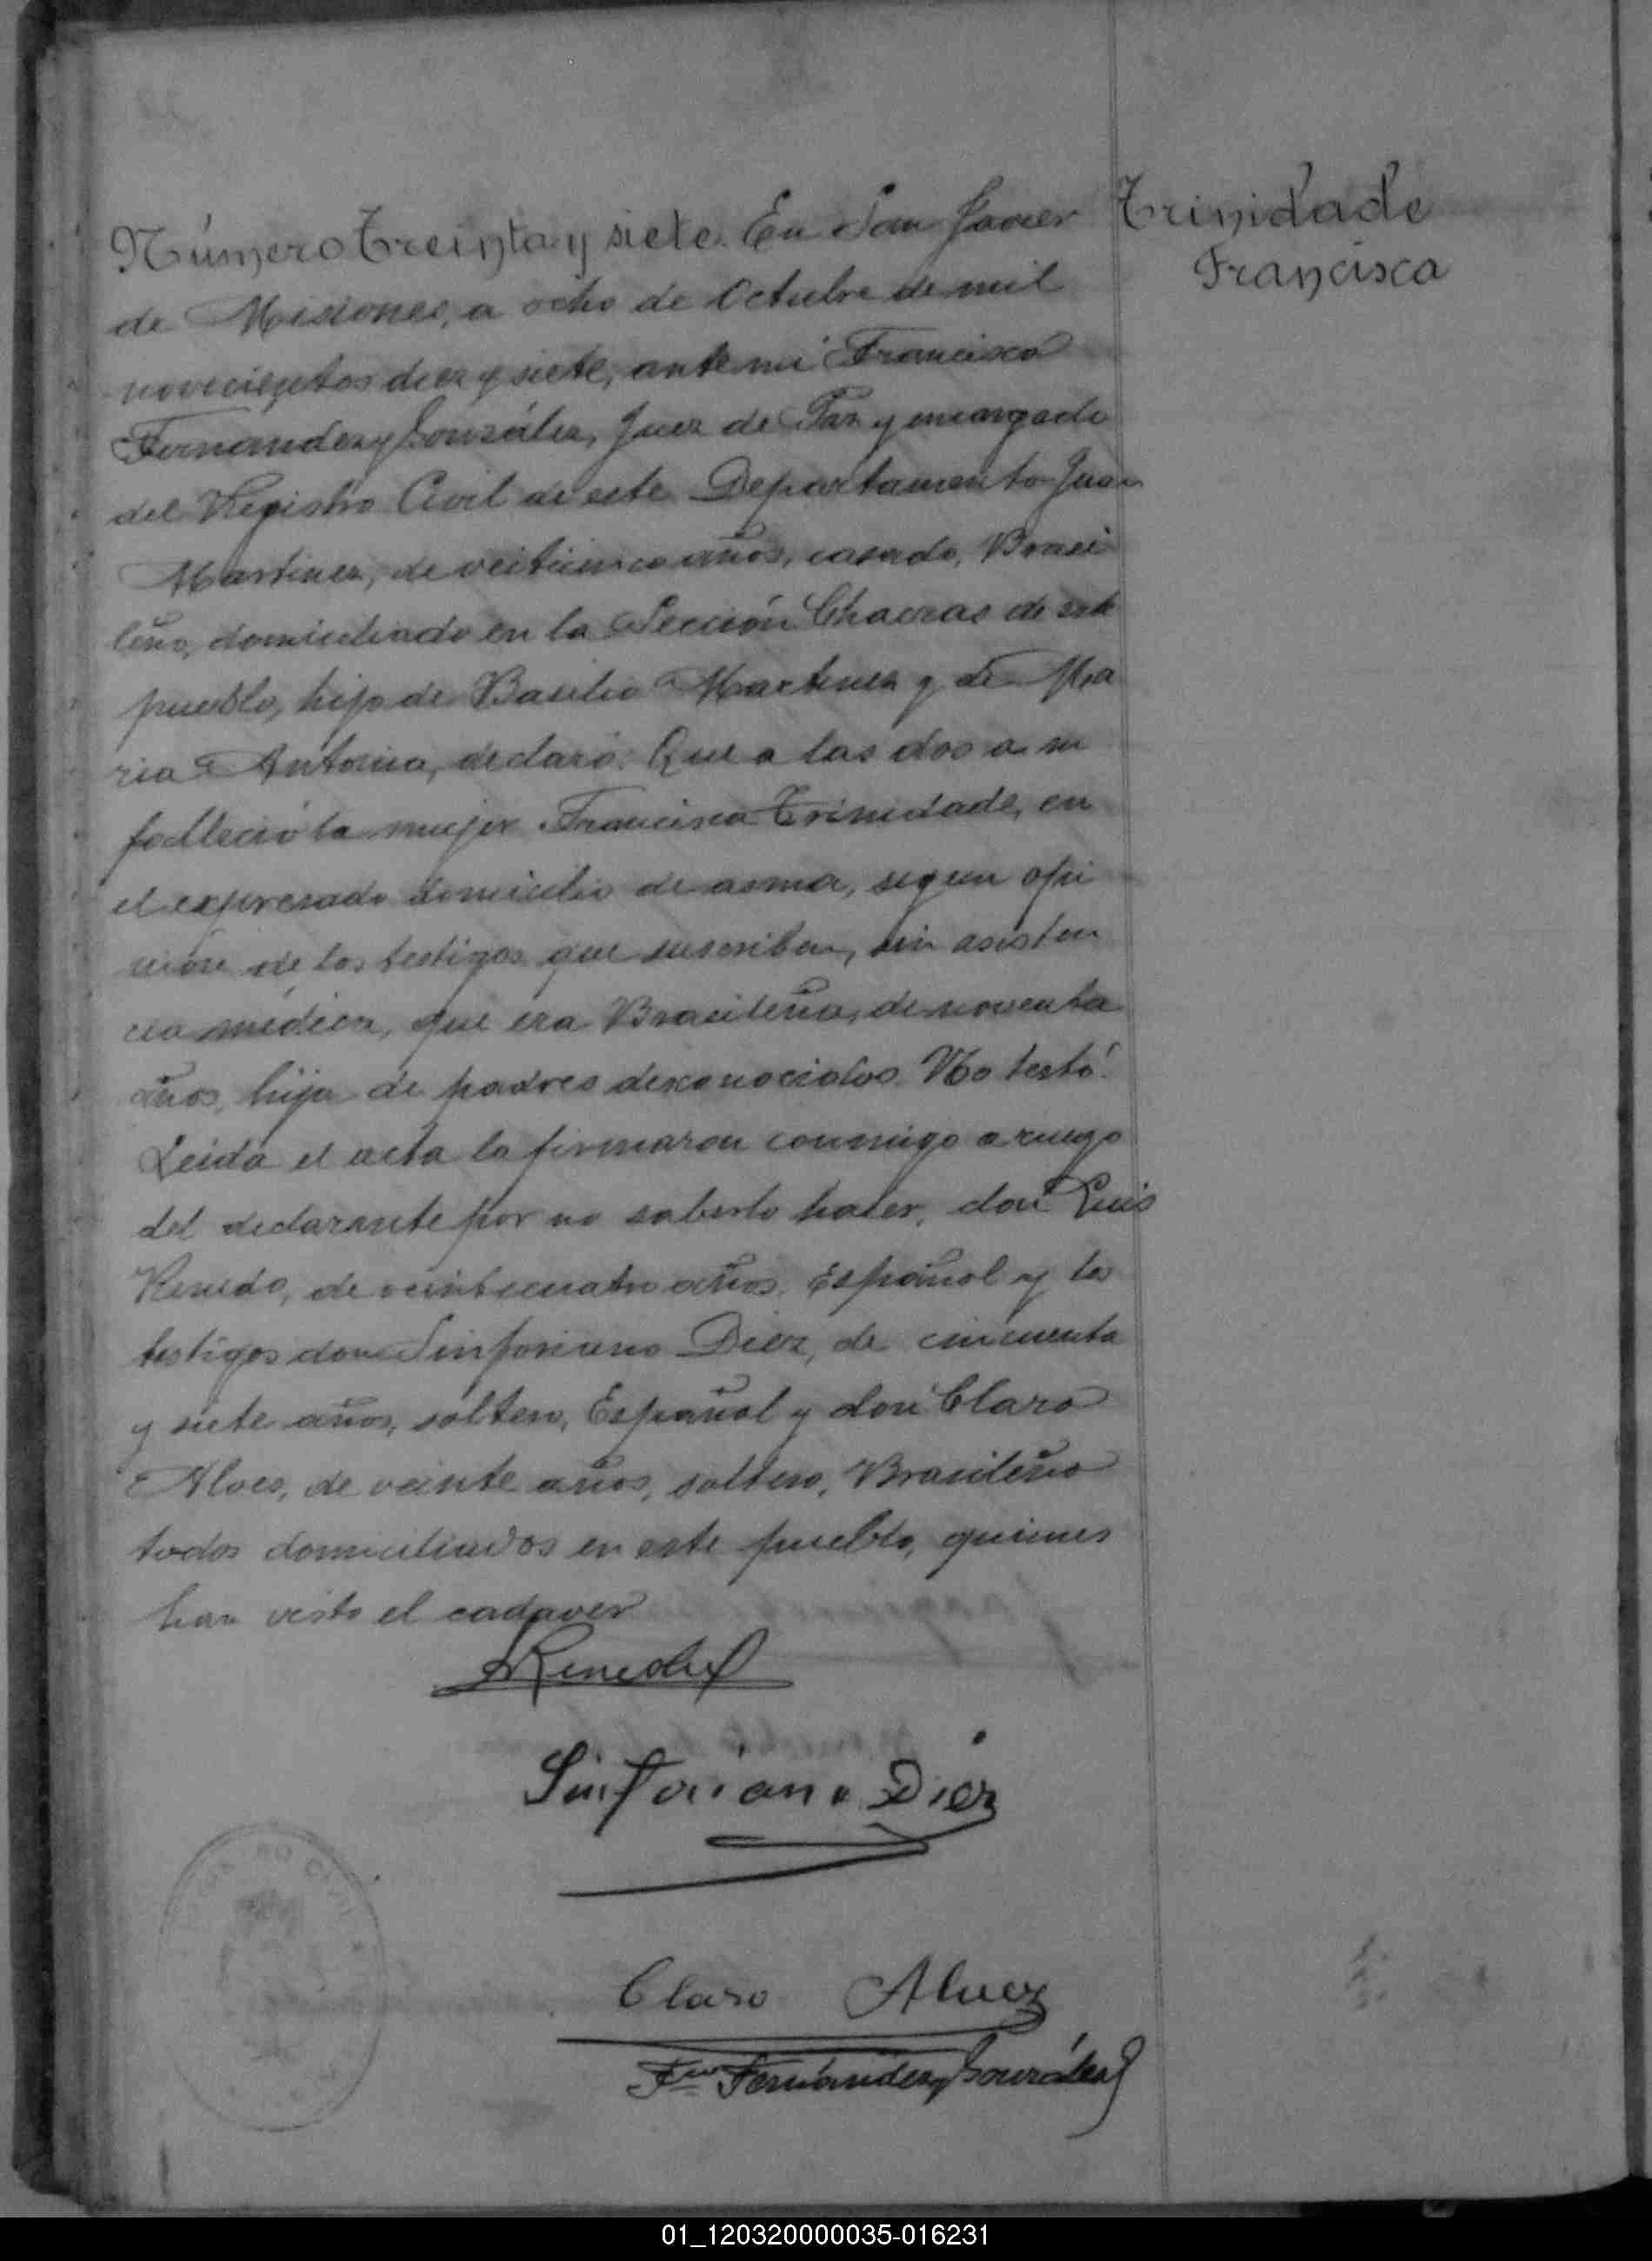 Número treinta y siete. En San Javier
Trinidade
Francisca
de Misiones, a ocho de Octubre de mil
novecientos diez y siete, ante mi Francisco
Fernandez y González, Juez de Paz y encargado
del Registro Civil de este Departamento Juan
Martinez, de veiticinco años, casado, Brasi
leño, domiciliado en la Sección Chacras de este
pueblo, hijo de Basilio Martinez y de Ma
ria Antonia, declaró: Que a las dos a m
falleció la mujer Francisca Trinidade, en
el expresado domicilio de asma, segun opi
nión de los testigos que suscriben, sin asisten
cia médica, que era Brasileña, de noventa
años, hija de padres desconocidos. No testó.
Leida el acta la firmaron conmigo a ruego
del declarante por no saberlo hacer, don Luis
Renedo, de veinticuatro años, Español y los
testigos don Sinforiano Diez, de cincuenta
y siete años, soltero, Español y don Claro
Alves, de veinte años, soltero, Brasileño
todos domiciliados en este pueblo, quienes
han visto el cadaver
LRenedo
Sinforiano Diez
Claro Alvez
Fco Fernández y González
01_120320000035-016231